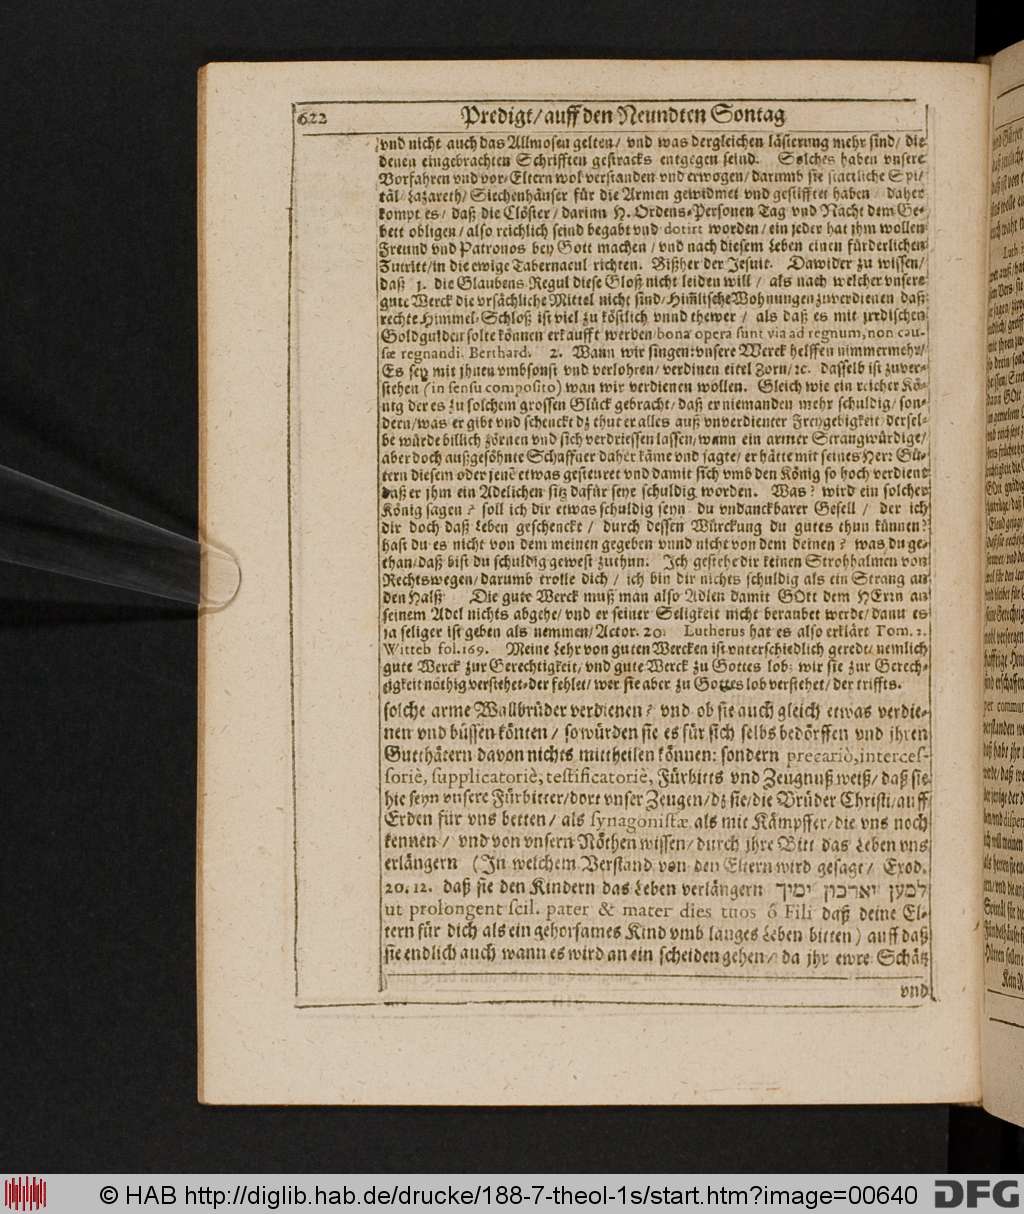 622 Predigt/ auff den Neundten Sontag
vnd nicht auch das Allmosen gelten/ vnd was dergleichen läsierung mehr sind/ die
denen eingebrachten Schrifften gestracks entgegen seind. Solches haben vnsere
Vorfahren vnd vor-Eltern wol verstanden vnd erwogen/ darumb sie stattliche Spi-
täl/ Lazareth/ Siechenhäuser für die Armen gewidmet vnd gestifftet haben/ daher
kompt es/ daß die Clöster/ darinn H. Ordens-Personen Tag vnd Nacht dem Ge-
bett obligen/ also reichlich seind begabt vnd dotirt worden/ ein jeder hat jhm wollen
Freund vnd Patronos bey Gott machen/ vnd nach diesem Leben einen fürderlichen
Zutritt/ in die ewige Tabernacul richten. Bißher der Jesuit. Dawider zu wissen/
daß 1. die Glaubens Regul diese Gloß nicht leiden will/ als nach welcher vnsere
gute Werck die vrsächliche Mittel nicht sind/ Him̃lische Wohnungen zuverdienen daß
rechte Himmel-Schloß ist viel zu köstlich vnnd thewer/ als daß es mit jrrdischen
Goldgulden solte können erkaufft werden/ bona opera sunt via ad regnum, non cau-
sæ regnandi. Bernhard. 2. Wann wir singen: vnsere Werck helffen nimmermehr/
Es sey mit jhnen vmbsonst vnd verlohren/ verdinen eitel Zorn/ ꝛc. dasselb ist zuver-
stehen (in sensu composito) wan wir verdienen wollen. Gleich wie ein reicher Kö-
nig der es zu solchem grossen Glück gebracht/ daß er niemanden mehr schuldig/ son-
dern/ was er gibt vnd schenckt dz thut er alles auß vnverdienter Freygebigkeit/ dersel-
be würde billich zörnen vnd sich verdriessen lassen/ wann ein armer Strangwürdige/
aber doch außgesöhnte Schaffner daher käme vnd sagte/ er hätte mit seines Herr Gü-
tern diesem oder jenẽ etwas gesteuret vnd damit sich vmb den König so hoch verdient
daß er jhm ein Adelichen sitz dafür seye schuldig worden. Was? wird ein solcher
König sagen? soll ich dir etwas schuldig seyn du vndanckbarer Gesell/ der ich
dir doch daß Leben geschenckt/ durch dessen Würckung du gutes thun können?
hast du es nicht von dem meinen gegeben vnnd nicht von dem deinen? was du ge-
than/ daß bist du schuldig gewest zuthun. Ich gestehe dir keinen Strohhalmen von
Rechtswegen/ darumb trolle dich/ ich bin dir nichts schuldig als ein Strang an
den Halß Die gute Werck muß man also Adlen damit GOtt dem HErrn an
seinem Adel nichts abgehe/ vnd er seiner Seligkeit nicht beraubet werde/ dann es
ja seliger ist geben als nemmen/ Actor. 20. Lutherus hat es also erklärt Tom. 2.
Witteb fol. 169. Meine Lehr von guten Wercken ist vnterschiedlich geredt/ nemlich
gute Werck zur Gerechtigkeit/ vnd gute Werck zu Gottes lob: wir sie zur Gerech-
tigkeit nöthig verstehet-der fehlet/ wer sie aber zu Gottes lob verstehet/ der triffts.
solche arme Wallbrüder verdienen? vnd ob sie auch gleich etwas verdie-
nen vnd büssen könten/ so würden sie es für sich selbs bedörffen vnd jhren
Gutthätern davon nichts mittheilen können: sondern precariò, interces-
soriè, supplicatoriè, testificatoriè, Fürbitts vnd Zeugnuß weiß/ daß sie
hie seyn vnsere Fürbitter/ dort vnser Zeugen/ dz sie/ die Brüder Christi/ auff
Erden für vns betten/ als synagonistæ als mit Kämpffer/ die vns noch
kennen/ vnd von vnsern Nöthen wissen/ durch jhre Bitt das Leben vns
erlängern (In welchem Verstand von den Eltern wird gesagt/ Exod.
20. 12. daß sie den Kindern das Leben verlängern למען יארכון ימיך
ut prolongent scil. pater & mater dies tuos ô Fili daß deine El-
tern für dich als ein gehorsames Kind vmb langes Leben bitten) auff daß
sie endlich auch wann es wird an ein scheiden gehen/ da jhr ewre Schätz
vnd
© HAB http://diglib.hab.de/drucke/188-7-theol-1s/start.htm?image=00640 DFG